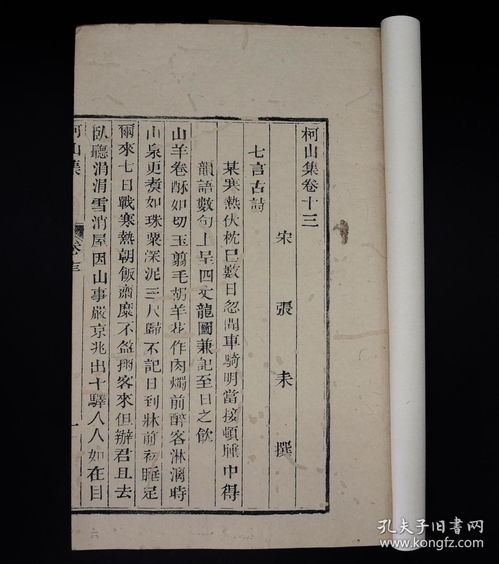 柯山集卷十三
宋 張 耒 撰
七言古詩
某寒熱伏枕已數日忽聞車騎明當按頓陲中得
韻語數句上呈四丈龍圖兼記至日之飲
山羊卷酥如切玉翦毛胡羊花作肉燭前醉客淋漓時
山泉更煑如珠粟深泥三尺歸不記日到牀前初睡足
爾來七日戰寒熱朝飯齋糜不盈掬客來但辦君且去
臥聽涓涓雪消屋因山事嚴京兆出十驛人人如在目
柯山集
卷十三
一
孔夫子旧书网
www.kongfz.com